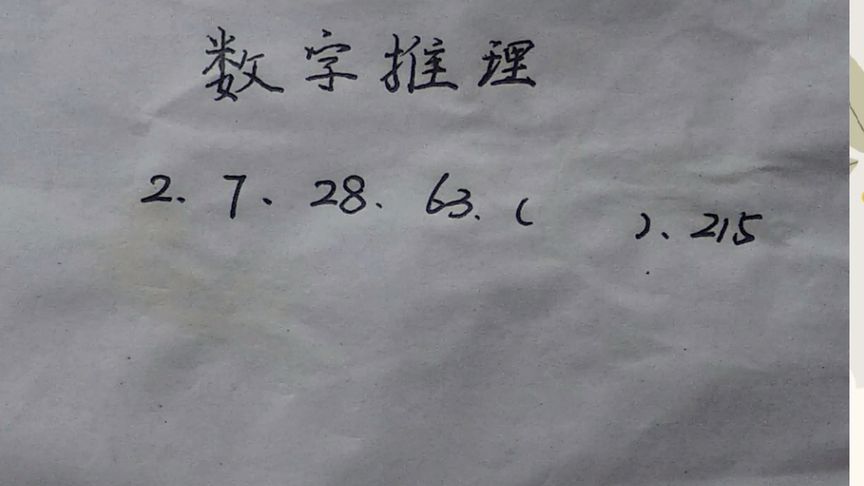 数字推理
2、7、28、63、(   )、215